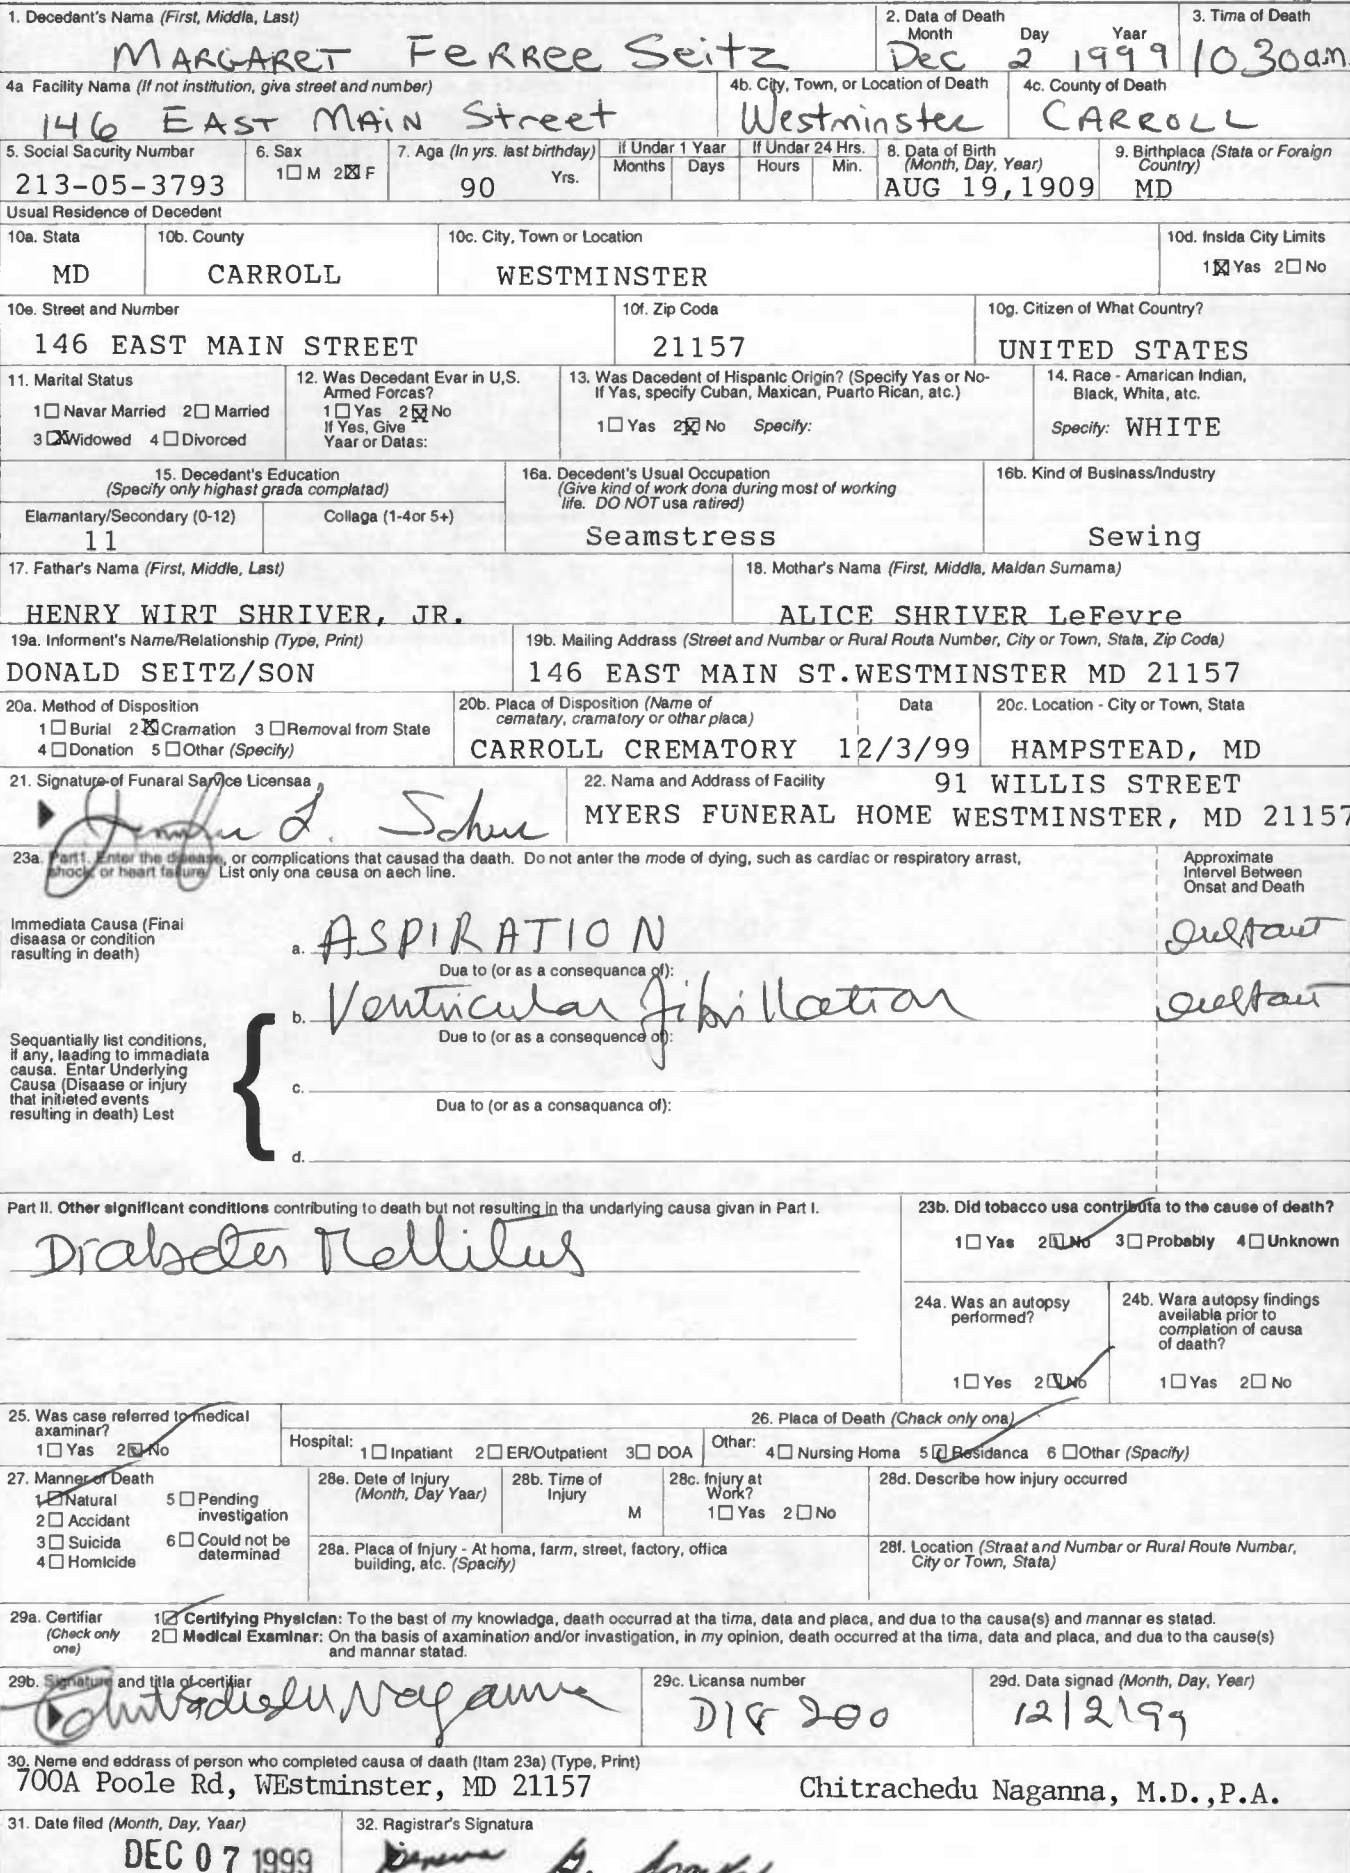 1. Decedant's Name (First, Middla, Last)
MARGARET Ferree Seitz
2. Data of Death
Month Day Yaar
Dec 2 1999
3. Tima of Death
10.30am
4a Facility Nama (If not institution, giva street and number)
146 EAST MAIN Street
4b. City, Town, or Location of Death
Westminster
4c. County of Death
CARROLL
5. Social Sacurity Numbar
213-05-3793
6. Sax
1☐ M 2☒ F
7. Aga (In yrs. last birthday)
90 Yrs.
If Undar 1 Yaar
Months Days
If Undar 24 Hrs.
Hours Min.
8. Data of Birth
(Month, Day, Year)
AUG 19,1909
9. Birthplaca (Stata or Foraign
Country)
MD
Usual Residence of Decedent
10a. Stata
MD
10b. County
CARROLL
10c. City, Town or Location
WESTMINSTER
10d. Insida City Limits
1☒ Yas 2☐ No
10e. Street and Number
146 EAST MAIN STREET
10f. Zip Coda
21157
10g. Citizen of What Country?
UNITED STATES
11. Marital Status
1☐ Navar Married 2☐ Married
3☒ Widowed 4☐ Divorced
12. Was Decedant Evar in U,S.
Armed Forcas?
1☐ Yas 2☒ No
If Yes, Give
Yaar or Datas:
13. Was Dacedent of Hispanic Origin? (Specify Yas or No-
If Yas, specify Cuban, Maxican, Puarto Rican, atc.)
1☐ Yas 2☒ No Specify:
14. Race - Amarican Indian,
Black, Whita, atc.
Specify: WHITE
15. Decedant's Education
(Specify only highast grada complatad)
Elamantary/Secondary (0-12)
11
Collaga (1-4or 5+)
16a. Decedent's Usual Occupation
(Give kind of work dona during most of working
life. DO NOT usa ratired)
Seamstress
16b. Kind of Businass/Industry
Sewing
17. Fathar's Nama (First, Middle, Last)
HENRY WIRT SHRIVER, JR.
18. Mothar's Nama (First, Middla, Maidan Surnama)
ALICE SHRIVER LeFevre
19a. Informent's Name/Relationship (Type, Print)
DONALD SEITZ/SON
19b. Mailing Address (Street and Numbar or Rural Routa Number, City or Town, Stata, Zip Coda)
146 EAST MAIN ST.WESTMINSTER MD 21157
20a. Method of Disposition
1☐ Burial 2☒ Cramation 3☐ Removal from State
4☐ Donation 5☐ Other (Specify)
20b. Placa of Disposition (Name of
cematary, cramatory or othar placa)
CARROLL CREMATORY
Data
12/3/99
20c. Location - City or Town, Stata
HAMPSTEAD, MD
21. Signature of Funaral Sarvice Licensaa
22. Nama and Addrass of Facility
91 WILLIS STREET
MYERS FUNERAL HOME WESTMINSTER, MD 21157
23a. Part I. Enter the disease, or complications that causad tha daath. Do not anter the mode of dying, such as cardiac or respiratory arrast,
shock, or heart failure. List only ona ceusa on aech line.
Approximate
Intervel Between
Onsat and Death
Immediata Causa (Finai
disaasa or condition
rasulting in death)
a. ASPIRATION
Dua to (or as a consequanca of):
b. Ventricular fibrillation
Due to (or as a consequence of):
Sequantially list conditions,
if any, laading to immadiata
causa. Entar Underlying
Causa (Disaase or injury
that initieted events
resulting in death) Lest
c.
Dua to (or as a consaquanca of):
d.
Part II. Other significant conditions contributing to death but not resulting in tha undarlying causa givan in Part I.
Diabetes Mellitus
23b. Did tobacco usa contributa to the cause of death?
1☐ Yas 2☑ No 3☐ Probably 4☐ Unknown
24a. Was an autopsy
performed?
1☐ Yes 2☑ No
24b. Wara autopsy findings
aveilabla prior to
complation of causa
of daath?
1☐ Yas 2☐ No
25. Was case referred to medical
axaminar?
1☐ Yas 2☑ No
26. Placa of Death (Chack only ona)
Hospital: 1☐ Inpatiant 2☐ ER/Outpatient 3☐ DOA
Othar: 4☐ Nursing Homa 5☑ Rasidanca 6☐ Othar (Spacify)
27. Manner of Death
1☑ Natural 5☐ Pending
investigation
2☐ Accidant
3☐ Suicida 6☐ Could not be
datarminad
4☐ Homicide
28e. Dete of Injury
(Month, Day Yaar)
28b. Time of
Injury
M
28c. Injury at
Work?
1☐ Yas 2☐ No
28d. Describe how injury occurred
28a. Placa of Injury - At homa, farm, street, factory, offica
building, atc. (Spacify)
28f. Location (Straat and Numbar or Rural Route Numbar,
City or Town, Stata)
29a. Certifiar
(Check only
one)
1☑ Certifying Physician: To the bast of my knowladga, daath occurrad at tha tima, data and placa, and dua to tha causa(s) and mannar es statad.
2☐ Medical Examinar: On tha basis of axamination and/or invastigation, in my opinion, death occurred at tha tima, data and placa, and due to tha cause(s)
and mannar statad.
29b. Signature and titla of certifiar
Chitrachedu Naganna
29c. Licansa number
D18200
29d. Data signad (Month, Day, Year)
12/2/99
30. Neme end eddress of person who completed causa of daath (Itam 23a) (Type, Print)
700A Poole Rd, WEstminster, MD 21157 Chitrachedu Naganna, M.D.,P.A.
31. Date filed (Month, Day, Yaar)
DEC 07 1999
32. Ragistrar's Signatura